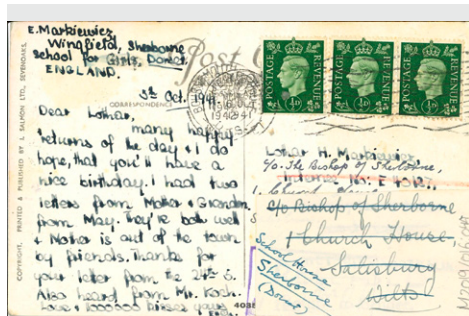 E. Markiewicz
Wingfield, Sherborne
School for Girls, Dorset
ENGLAND.
Post
CORRESPONDENCE
5th Oct. 1941
Dear Lothar,
many happy
returns of the day & I do
hope, that you'll have a
nice birthday. I had two
letters from Mother & Grandm.
from May. They're both well
& Mother is out of the town
by friends. Thanks for
your letter from the 24th 5.
Also heard from Mr. Koch.
Love & 1000000 kisses yours
COPYRIGHT. PRINTED & PUBLISHED BY J. SALMON LTD., SEVENOAKS.
POSTAGE REVENUE
½D
POSTAGE REVENUE
½D
POSTAGE REVENUE
½D
1941
Lothar H. Markiewicz
c/o The Bishop of Sherborne,
Interne No.
c/o Bishop of Sherborne
Church House
Salisbury
Wilts
School House
Sherborne
(Dorset)